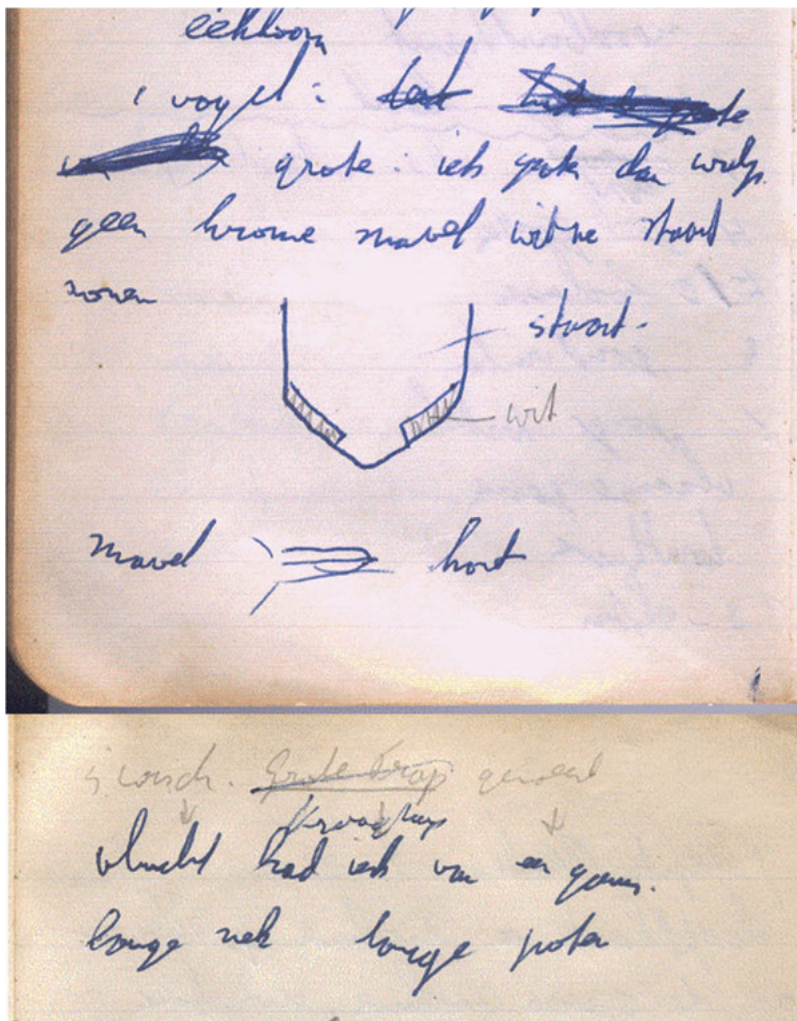 eekhoorn
1 vogel :
grote : iets groter dan wulp.
geen kromme snavel witte staart
zomen
staart.
wit
snavel
kort
is waarsch. Grote Trap geweest
Kraagtrap
vlucht had iets van een gans.
lange nek lange poten